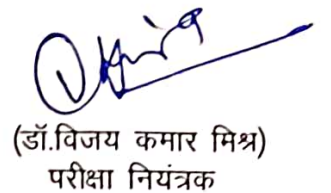 (डॉ.विजय कमार मिश्र)
परीक्षा नियंत्रक